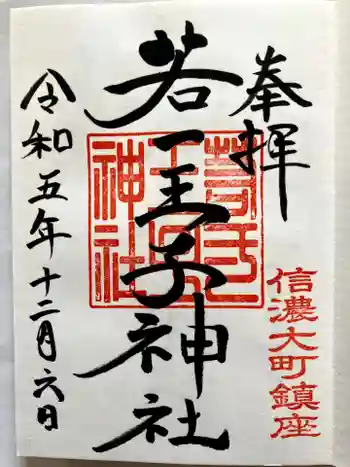 奉拝
信濃大町鎮座
若一王子神社
令和五年十二月六日